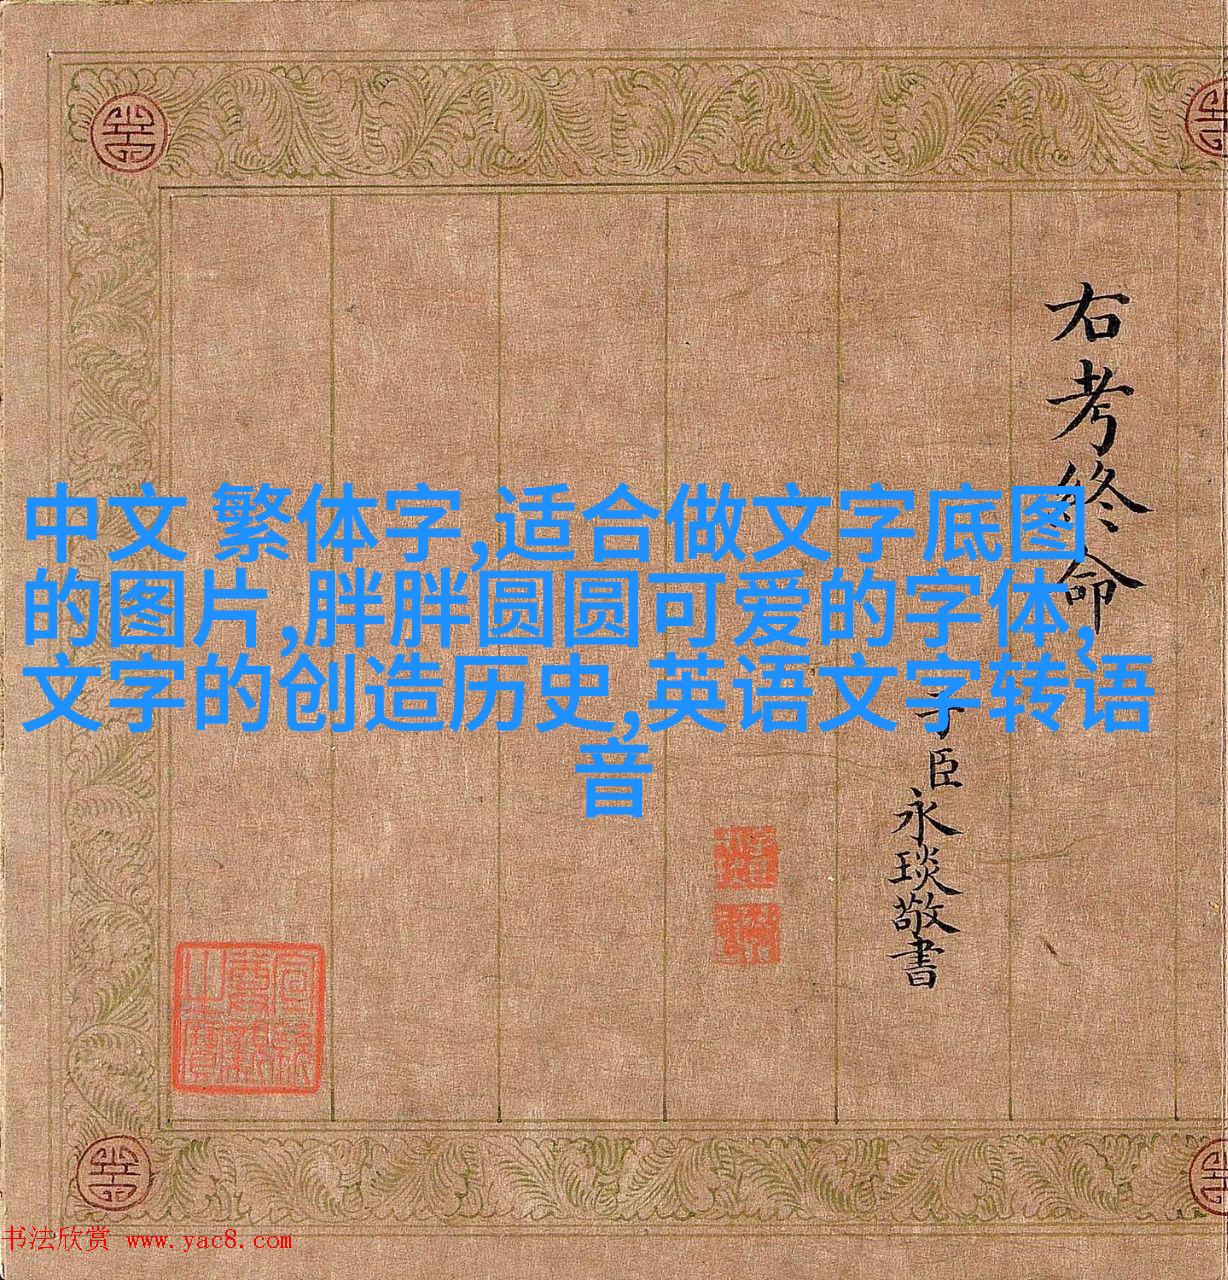 中文 繁体字,适合做文字底图
的图片,胖胖圆圆可爱的字体,
文字的创造历史,英语文字转语
音
右考終命
子臣永琰敬書
书法欣赏 www.yac8.com